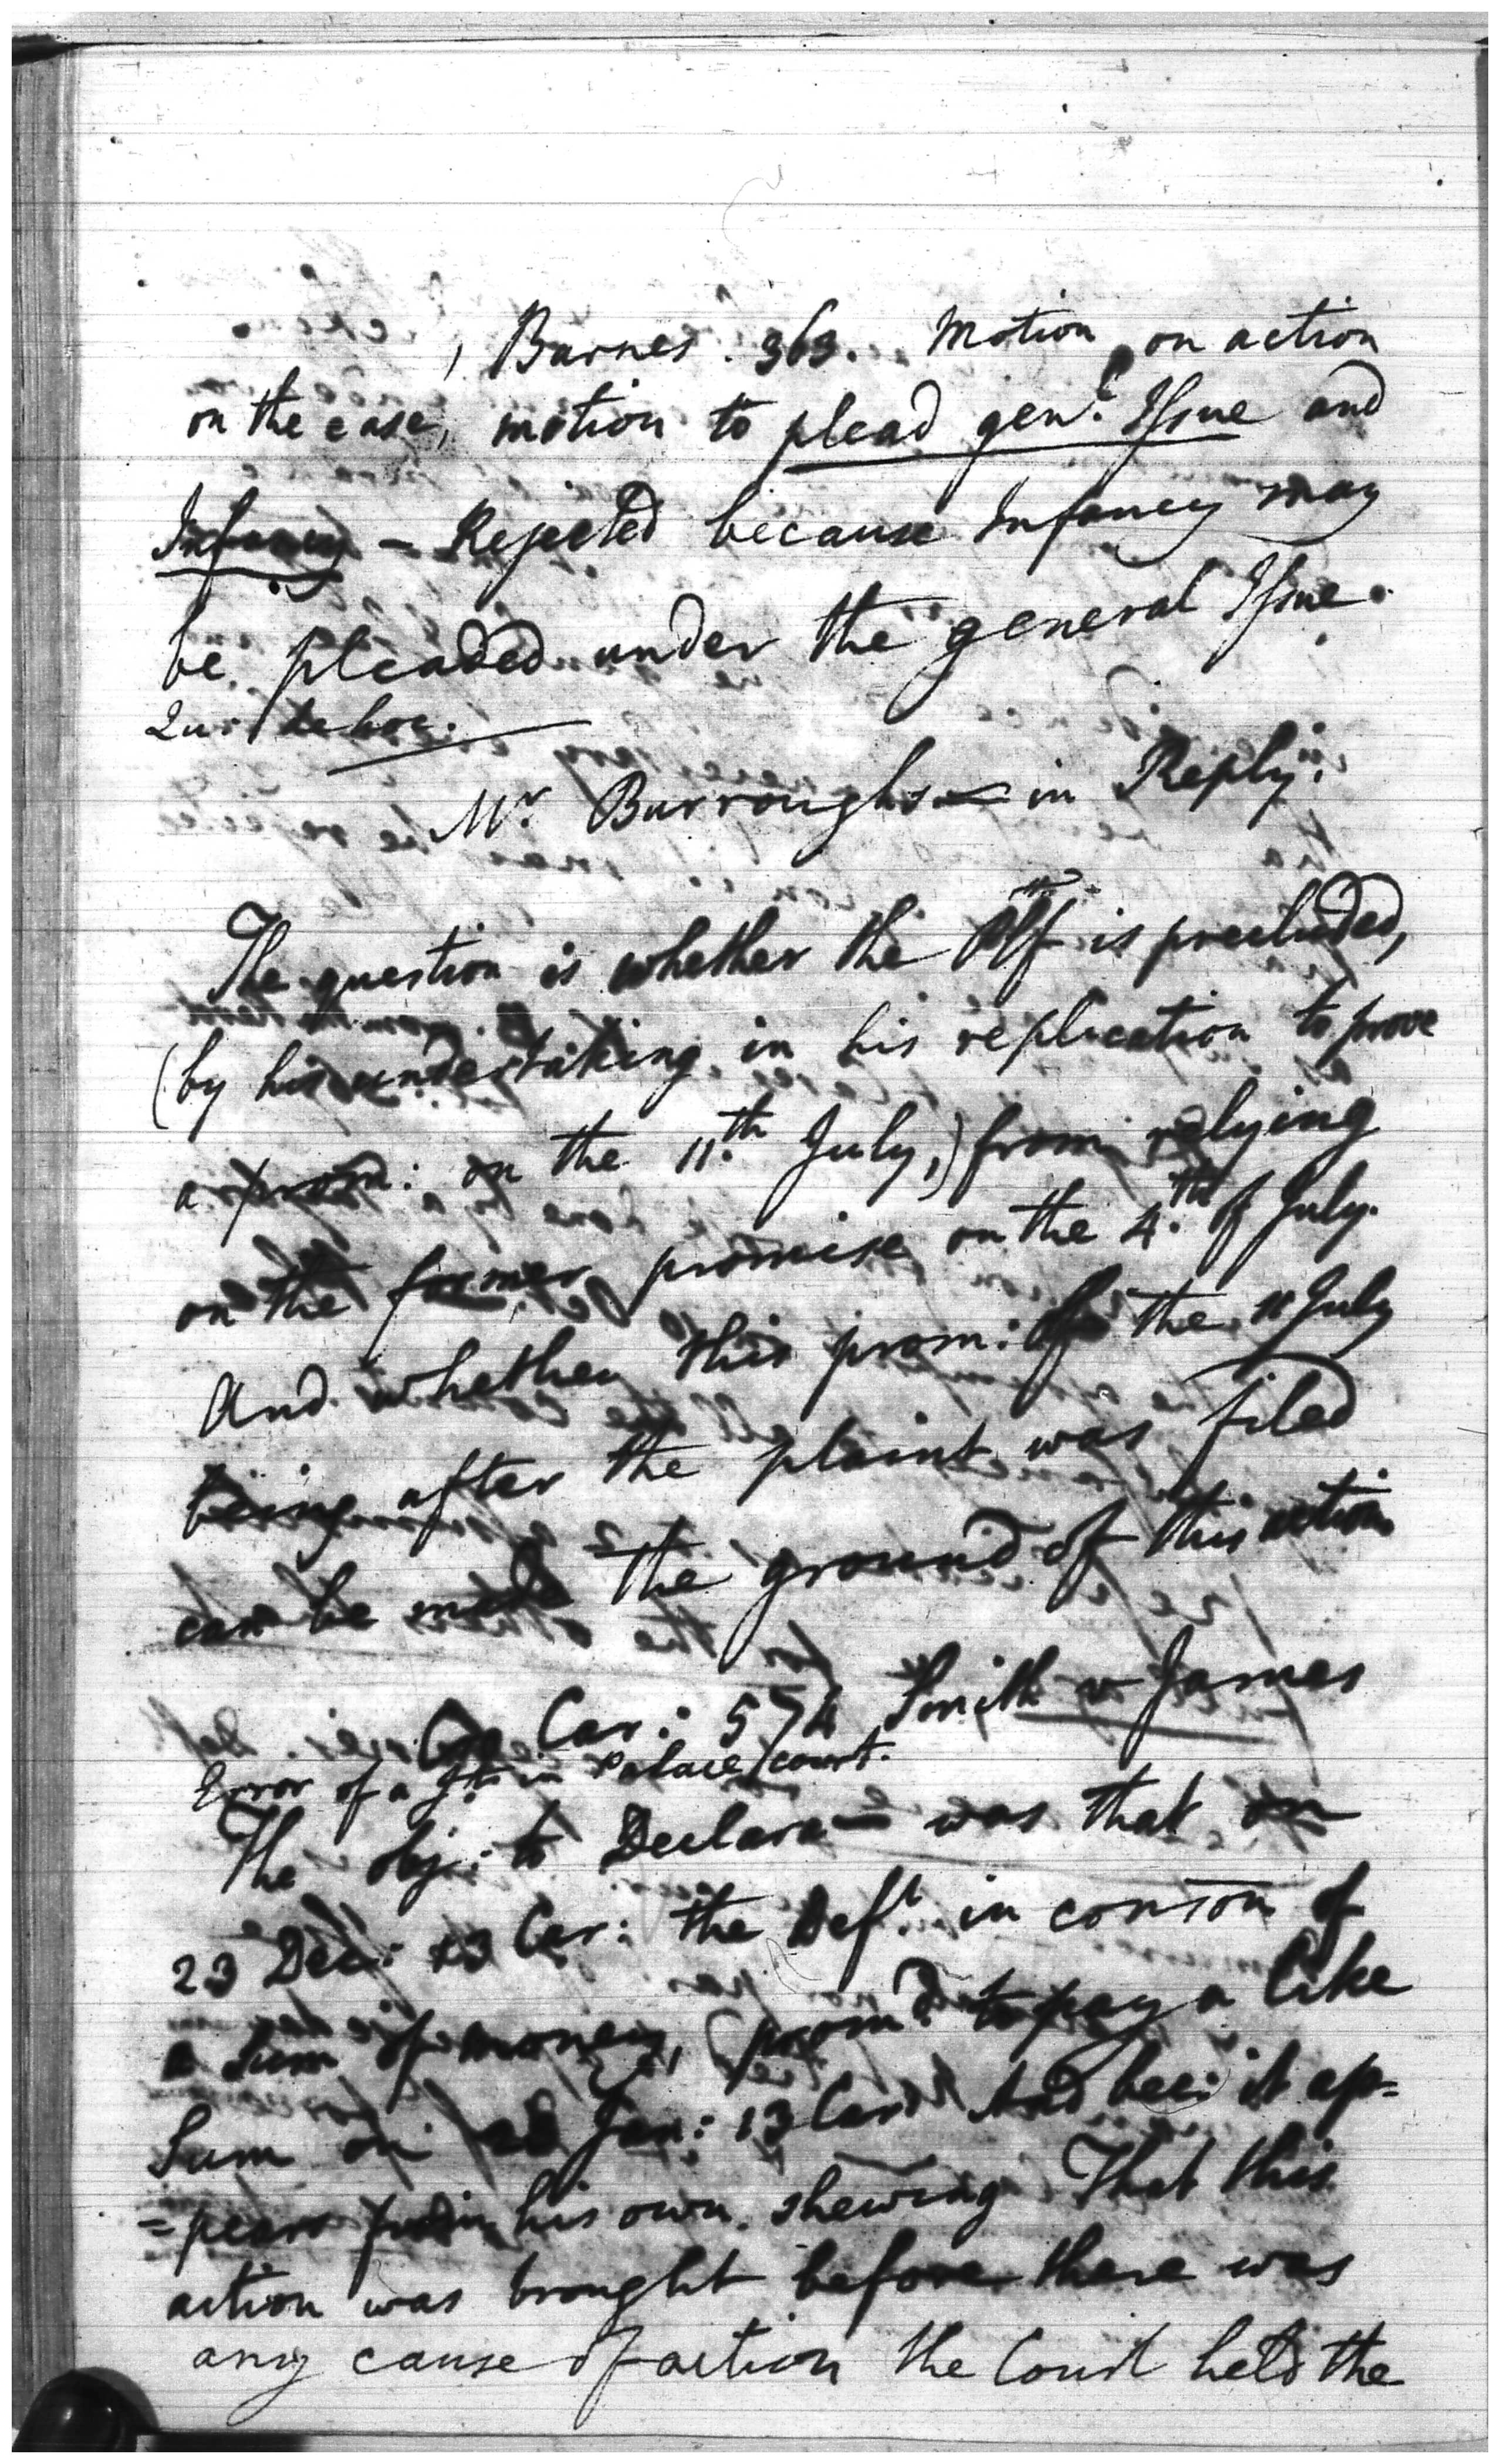 Barnes. 363. Motion, on action
on the case, motion to plead genl. Issue and
Infancy - Rejected because Infancy may
be pleaded under the general Issue.
de hoc.
Mr. Burroughs in Reply.
The question is whether the Plf is precluded,
(by his undertaking in his replication to prove
a prom: on the 11.th July,) from relying
on the former promise on the 4.th of July.
And whether this prom: of the 11 July
being after the plaint was filed
can be made the ground of this action
Cro Car: 574 Smith v James
Error of a Jt. in Palace court.
The obj: to Declara- was that on
23 Dec: 13 Car: the Deft in conson of
a Sum of money, promd. to pay a like
Sum on 28 Jan: 13 Car: And bec: it ap=
=pears from his own shewing That this
action was brought before there was
any cause of action the Court held the